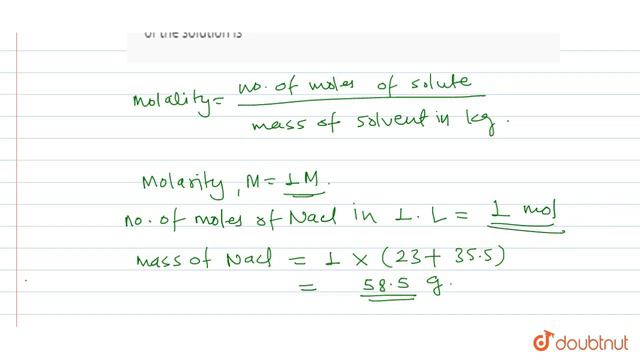 of the solution is
molality = no. of moles of solute / mass of solvent in kg.
Molarity, M = 1 M.
no. of moles of Nacl in 1. L = 1 mol
mass of Nacl = 1 × (23 + 35.5)
= 58.5 g.
doubtnut